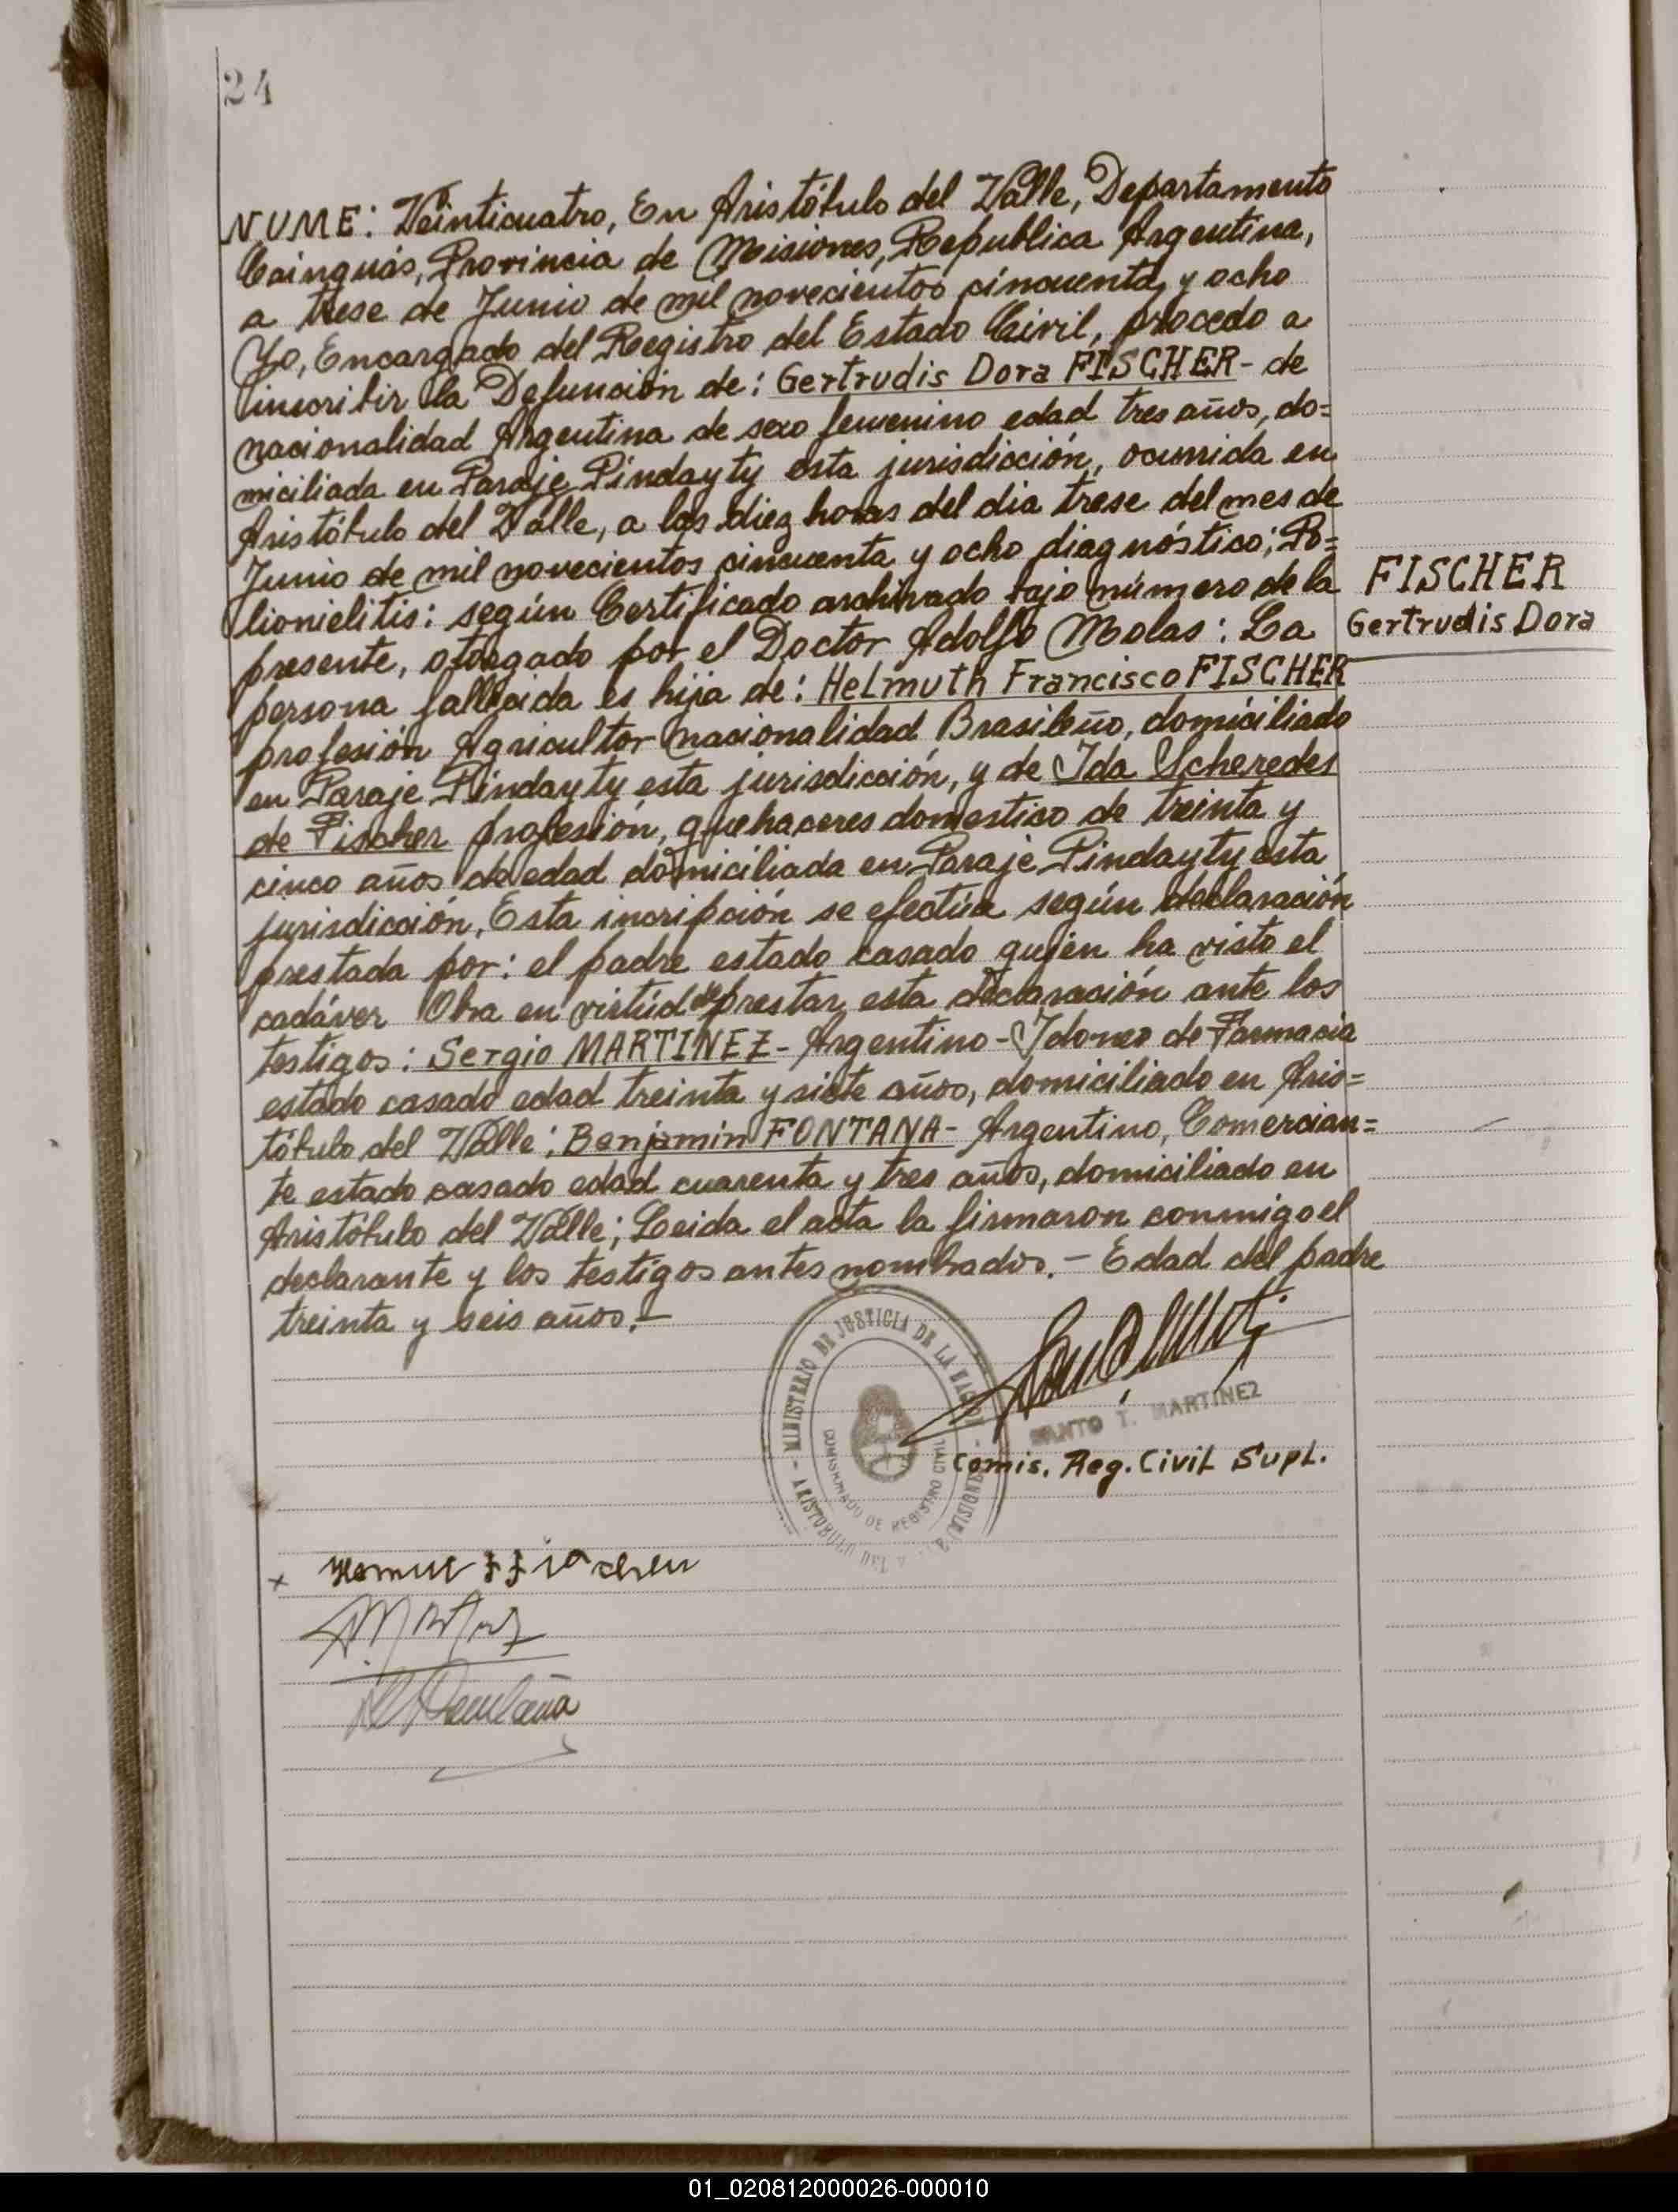 24
NUME: Veinticuatro, En Aristóbulo del Valle, Departamento
Cainguás, Provincia de Misiones, Republica Argentina,
a trese de Junio de mil novecientos cincuenta y ocho
Yo, Encargado del Registro del Estado Civil, procedo a
inscribir la Defunción de: Gertrudis Dora FISCHER - de
nacionalidad Argentina de sexo femenino edad tres años, do=
miciliada en Paraje Pindayty esta jurisdicción, ocurrida en
Aristóbulo del Valle, a las diez horas del dia trese del mes de
Junio de mil novecientos cincuenta y ocho diagnóstico; Po=
lionielitis: según Certificado archivado bajo número de la
presente, otorgado por el Doctor Adolfo Molas: La
persona fallecida es hija de: Helmuth Francisco FISCHER
profesión Agricultor nacionalidad Brasileño, domiciliado
en Paraje Pindayty esta jurisdicción, y de Ida Scheredes
de Fischer profesión, quehaceres domestico de treinta y
cinco años de edad domiciliada en Paraje Pindayty esta
jurisdicción, Esta incripción se efectúa según declaración
prestada por: el padre estado casado quien ha visto el
cadáver Obra en virtúd de prestar esta declaración ante los
testigos: Sergio MARTINEZ - Argentino - Idoneo de Farmacia
estado casado edad treinta y siete años, domiciliado en Aris=
tóbulo del Valle; Benjamin FONTANA - Argentino, Comercian=
te estado casado edad cuarenta y tres años, domiciliado en
Aristóbulo del Valle; Leida el acta la firmaron conmigo el
declarante y los testigos antes nombrados. - Edad del padre
treinta y seis años. -
FISCHER
Gertrudis Dora
MINISTERIO DE JUSTICIA DE LA NACION
DE REGISTRO CIVIL
ARISTOBULO DEL (MISIONES)
SANTO T. MARTINEZ
Comis. Reg. Civil Supl.
x
01_020812000026-000010